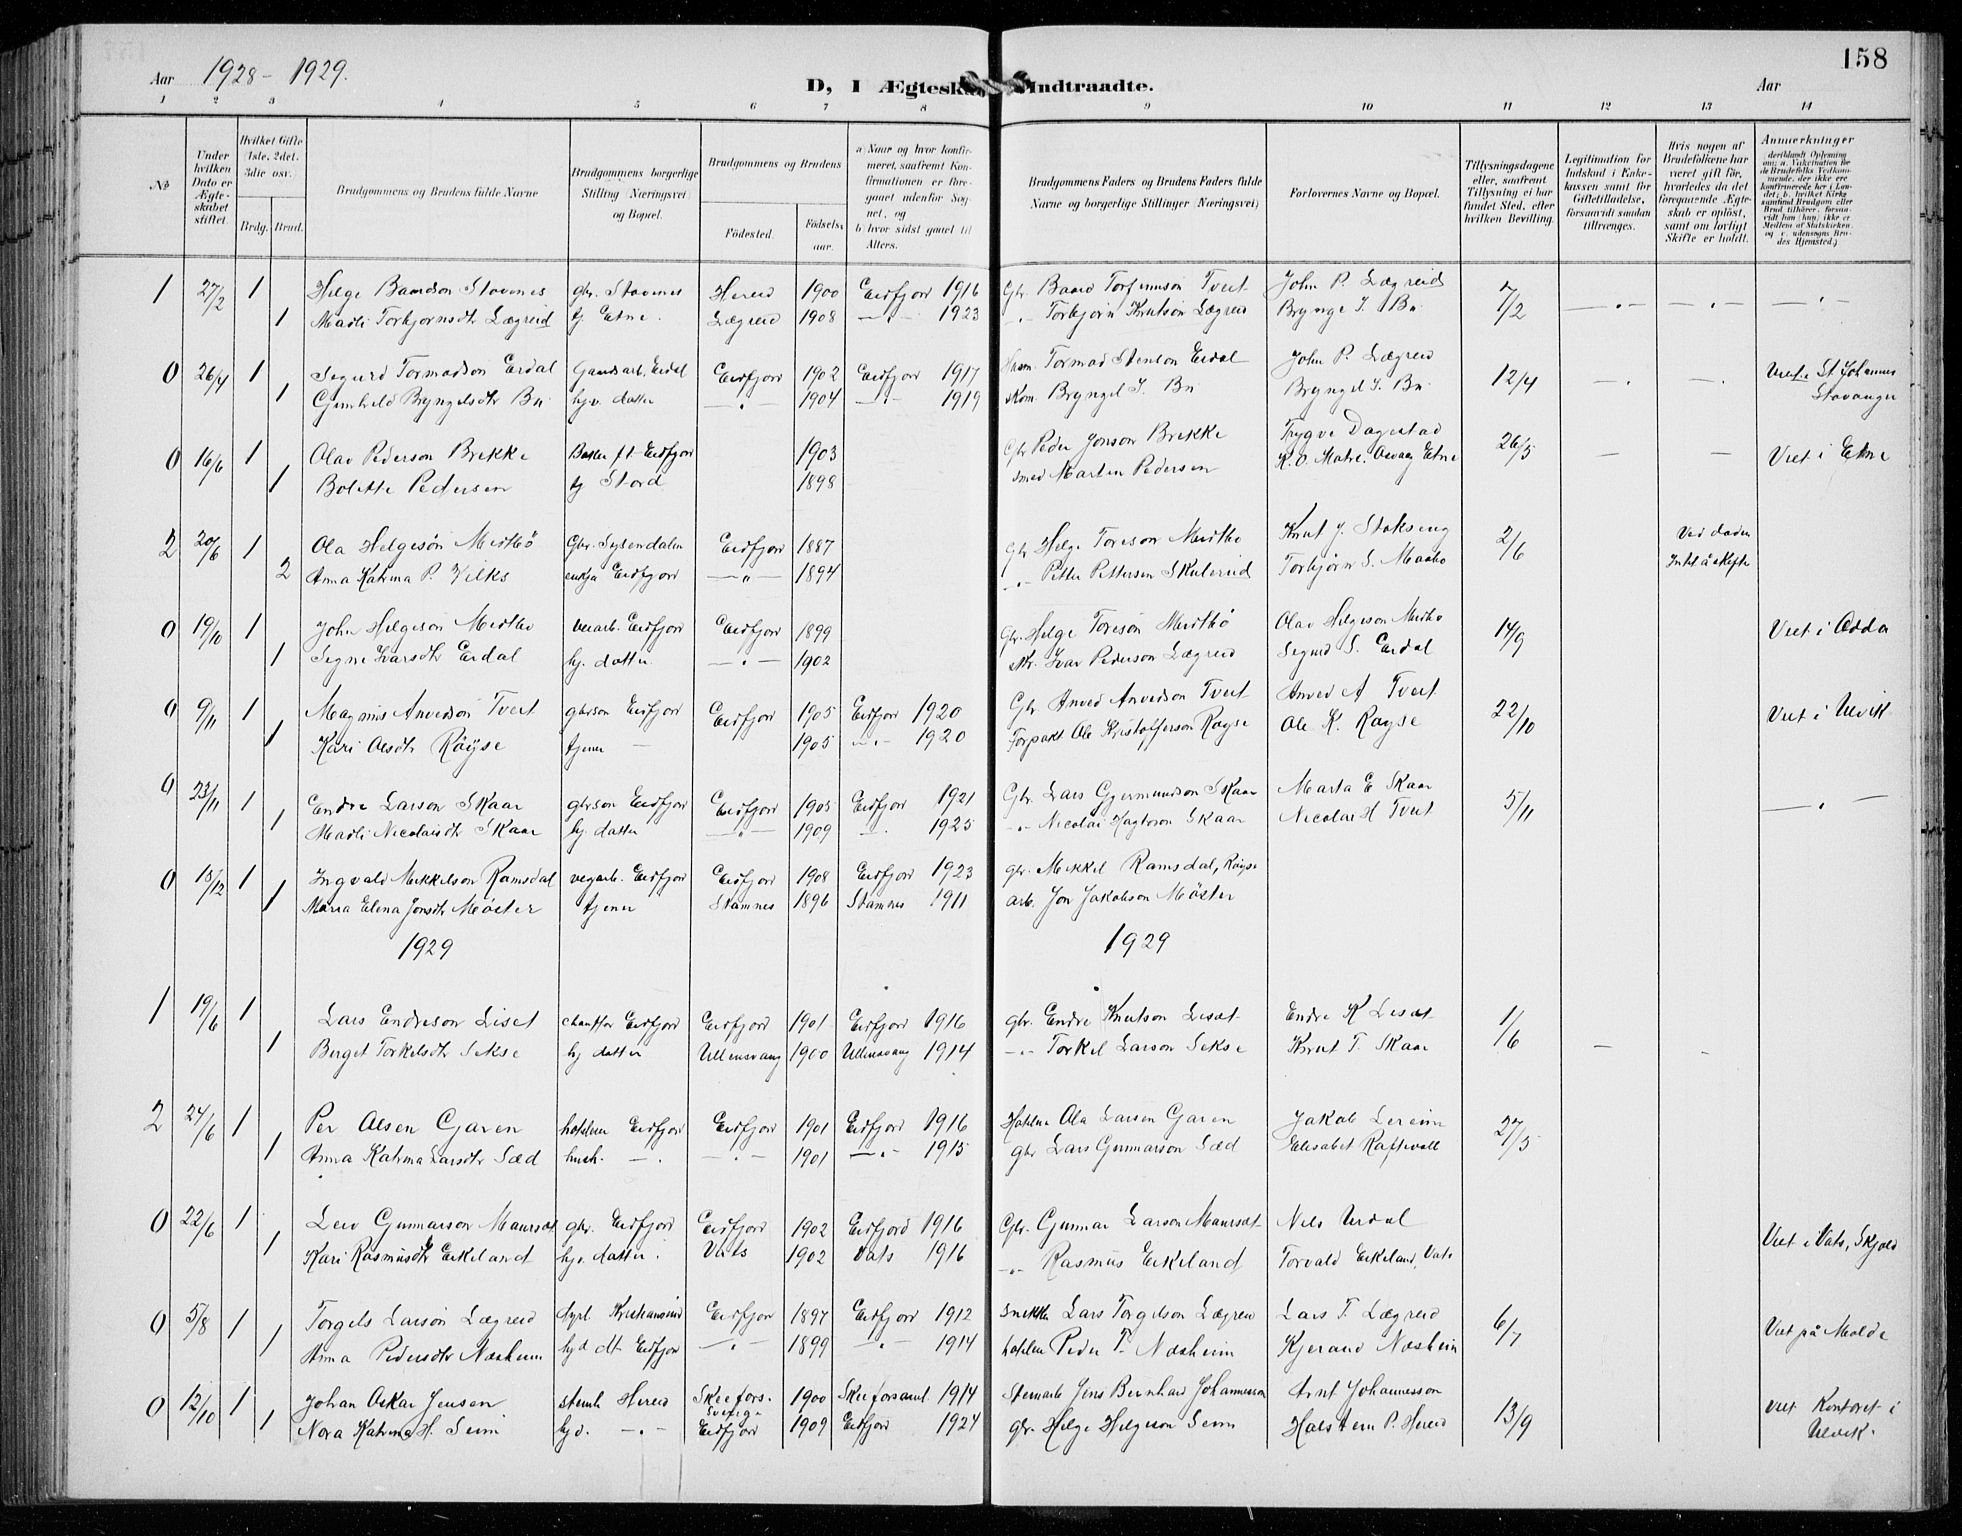 158
Aar 1928 - 1929.
D, I Ægteska Indtraadte.
Aar
1 2 3 4 5 6 7 8 9 10 11 12 13 14
No
Under hvilken Dato er Ægteskabet stiftet.
Hvilket Gifte 1ste, 2det, 3die osv.
Brdg. Brud.
Brudgommens og Brudens fulde Navne
Brudgommens borgerlige Stilling (Næringsvei) og Bopæl.
Brudgommens og Brudens
Fødested.
Fødselsaar.
a) Naar og hvor konfirmeret, saafremt Konfirmationen er foregaaet udenfor Sognet, og b) hvor sidst gaaet til Alters.
Brudgommens Faders og Brudens Faders fulde Navne og borgerlige Stillinger (Næringsvei)
Forlovernes Navne og Bopæl.
Tillysningsdagene eller, saafremt Tillysning ei har fundet Sted, efter hvilken Bevilling.
Legitimation for Indskud i Enkekassen samt for Giftetilladelse, forsaavidt saadan tiltrænges.
Hvis nogen af Brudefolkene har været gift før, hvorledes da det foregaaende Ægteskab er opløst, samt om lovligt Skifte er holdt.
Anmærkninger
1 27/2 1 Helge Baardson Stavenes gbr. Stavenes Hereid 1900 Eidfjord 1916 Gbr. Baard Torfinnson Tveit John P. Lægreid 7/2
1 Madli Torbjornsdtr Lægreid hj. Etne. Lægreid 1908 — " — 1923 — " — Torbjørn Knutson Lægreid Brynge I. Bu
0 26/4 1 Sigurd Tormodson Erdal Gaardsarb. Erdal Eidfjord 1902 Eidfjord 1917 Tormod Stenson Erdal John P. Lægreid 12/4 Viet i St Johannes
1 Gunhild Bryngelsdtr Bu hj. datter — " — 1904 — " — 1919 Bryngel I. Bu Bryngel I. Bu Stavanger
0 16/6 1 Olav Pederson Brekke ft Eidfjord 1903 Gbr Peder Jonson Brekke Trygve Dagestad 26/5 Viet i Etne
1 Bolette Pedersen hj Stord 1898 smed Martin Pedersen K. O. Matre. Osvaag Etne
2 20/6 1 Ola Helgesøn Midtbø Gbr. Sysendalen Eidfjord 1887 Gbr Helge Toreson Midtbø Knut J. Stokseng 2/6 Ved døden
2 Anna Katrina P. Vilks enkja Eidfjord — " — 1894 — " — Petter Pettersen Skulerud Torbjørn S. Maabø Intet å skifte
0 19/10 1 John Helgeson Midtbø verarb. Eidfjord Eidfjord 1899 Gbr. Helge Toreson Midtbø Olav Helgeson Midtbø 14/9 Viet i Odda
1 Signe Ivarsdtr Erdal hj. datter — " — 1902 Ivar Pederson Lægreid Sigurd S. Erdal
0 9/11 1 Magnus Anvedson Tveit gbrson Eidfjord Eidfjord 1905 Eidfjord 1920 Gbr. Anved Anvedson Tveit Anved A Tveit 22/10 Viet i Ulvik
1 Kari Olsdtr Røyse tjener — 1905 — " — 1920 Forpakt Ole Kristofferson Røyse Ole K. Røyse
0 23/11 1 Endre Larson Skaar gbrson Eidfjord Eidfjord 1905 Eidfjord 1921 Gbr. Lars Gjermundson Skaar Marta E Skaar 5/11 — " —
1 Madli Nicolaisdtr Skaar hj. datter — " — 1909 — " 1925 — " — Nicolai Hagtorson Skaar Nicolai H Tveit
0 18/12 1 Ingvald Mikkelson Ramsdal vegarb. Eidfjord Eidfjord 1908 Eidfjord 1923 gbr. Mikkel Ramsdal, Røyse
1 Maria Elena Jonsdtr Møster tjener Stamnes 1896 Stamnes 1911 arb. Jon Jakobson Møster
1929 1929
1 19/6 1 Lars Endreson Liset chauffør Eidfjord Eidfjord 1901 Eidfjord 1916 gbr. Endre Knutson Liset Endre K Liset 1/6
1 Berget Torkelsdtr Sekse hj datter Ullensvang 1900 Ullensvang 1914 — " — Torkel Larson Sekse Knut T. Skaar
2 24/6 1 Per Olsen Garen hoteleier Eidfjord Eidfjord 1901 Eidfjord 1916 Hoteleier Ola Larsen Garen Jakob Lereim 27/5
1 Anna Katrina Larsdtr Sæd hush. — " — — " — 1901 — " — 1915 gbr Lars Gunnarson Sæd Elisabet Raftevoll
0 22/6 1 Leiv Gunnarson Maursæt gbr. Eidfjord Eidfjord 1902 Eidfjord 1916 Gbr. Gunnar Larson Maursæt Nils Urdal Viet i Vats, Skjold
1 Kari Rasmusdtr Eikeland hj. datter Vats 1902 Vats 1916 — " — Rasmus Eikeland Torvald Eikeland, Vats
0 5/8 1 Torgils Larson Lægreid Kristiansund Eidfjor 1897 Eidfjord 1912 Snekker Lars Torgilson Lægreid Lars T. Lægreid 6/7 Viet på Molde
1 Anna Pedersdtr Næsheim hj dt Eidfjor — " — 1899 " 1914 hoteleier Peder T. Næsheim Kjerand Næsheim
0 12/10 1 Johan Oskar Jensen stenh Hereid Skeefors. Sverige 1900 Skeeforsaml. 1914 Stenarb Jens Bernhard Johannesson Arnt Johannesson 13/9 viet Kontoret i
1 Nora Katrina H. Seim hj. — " — Eidfjord 1909 Eidfjor 1924 gbr. Helge Helgeson Seim Halstein P. Hereid Ulvik.